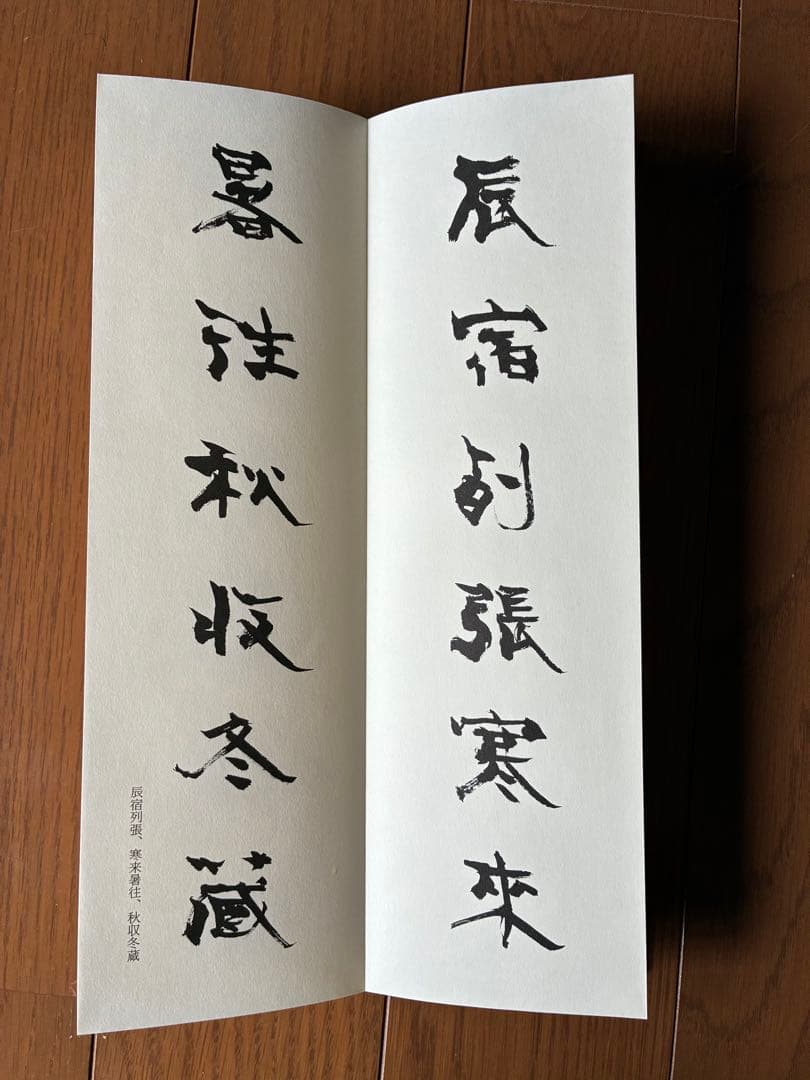 辰宿列張寒來
暑往秋收冬蔵
辰宿列張、寒来暑往、秋収冬蔵